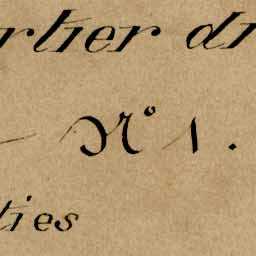 rtier di
— N° 1.
ties